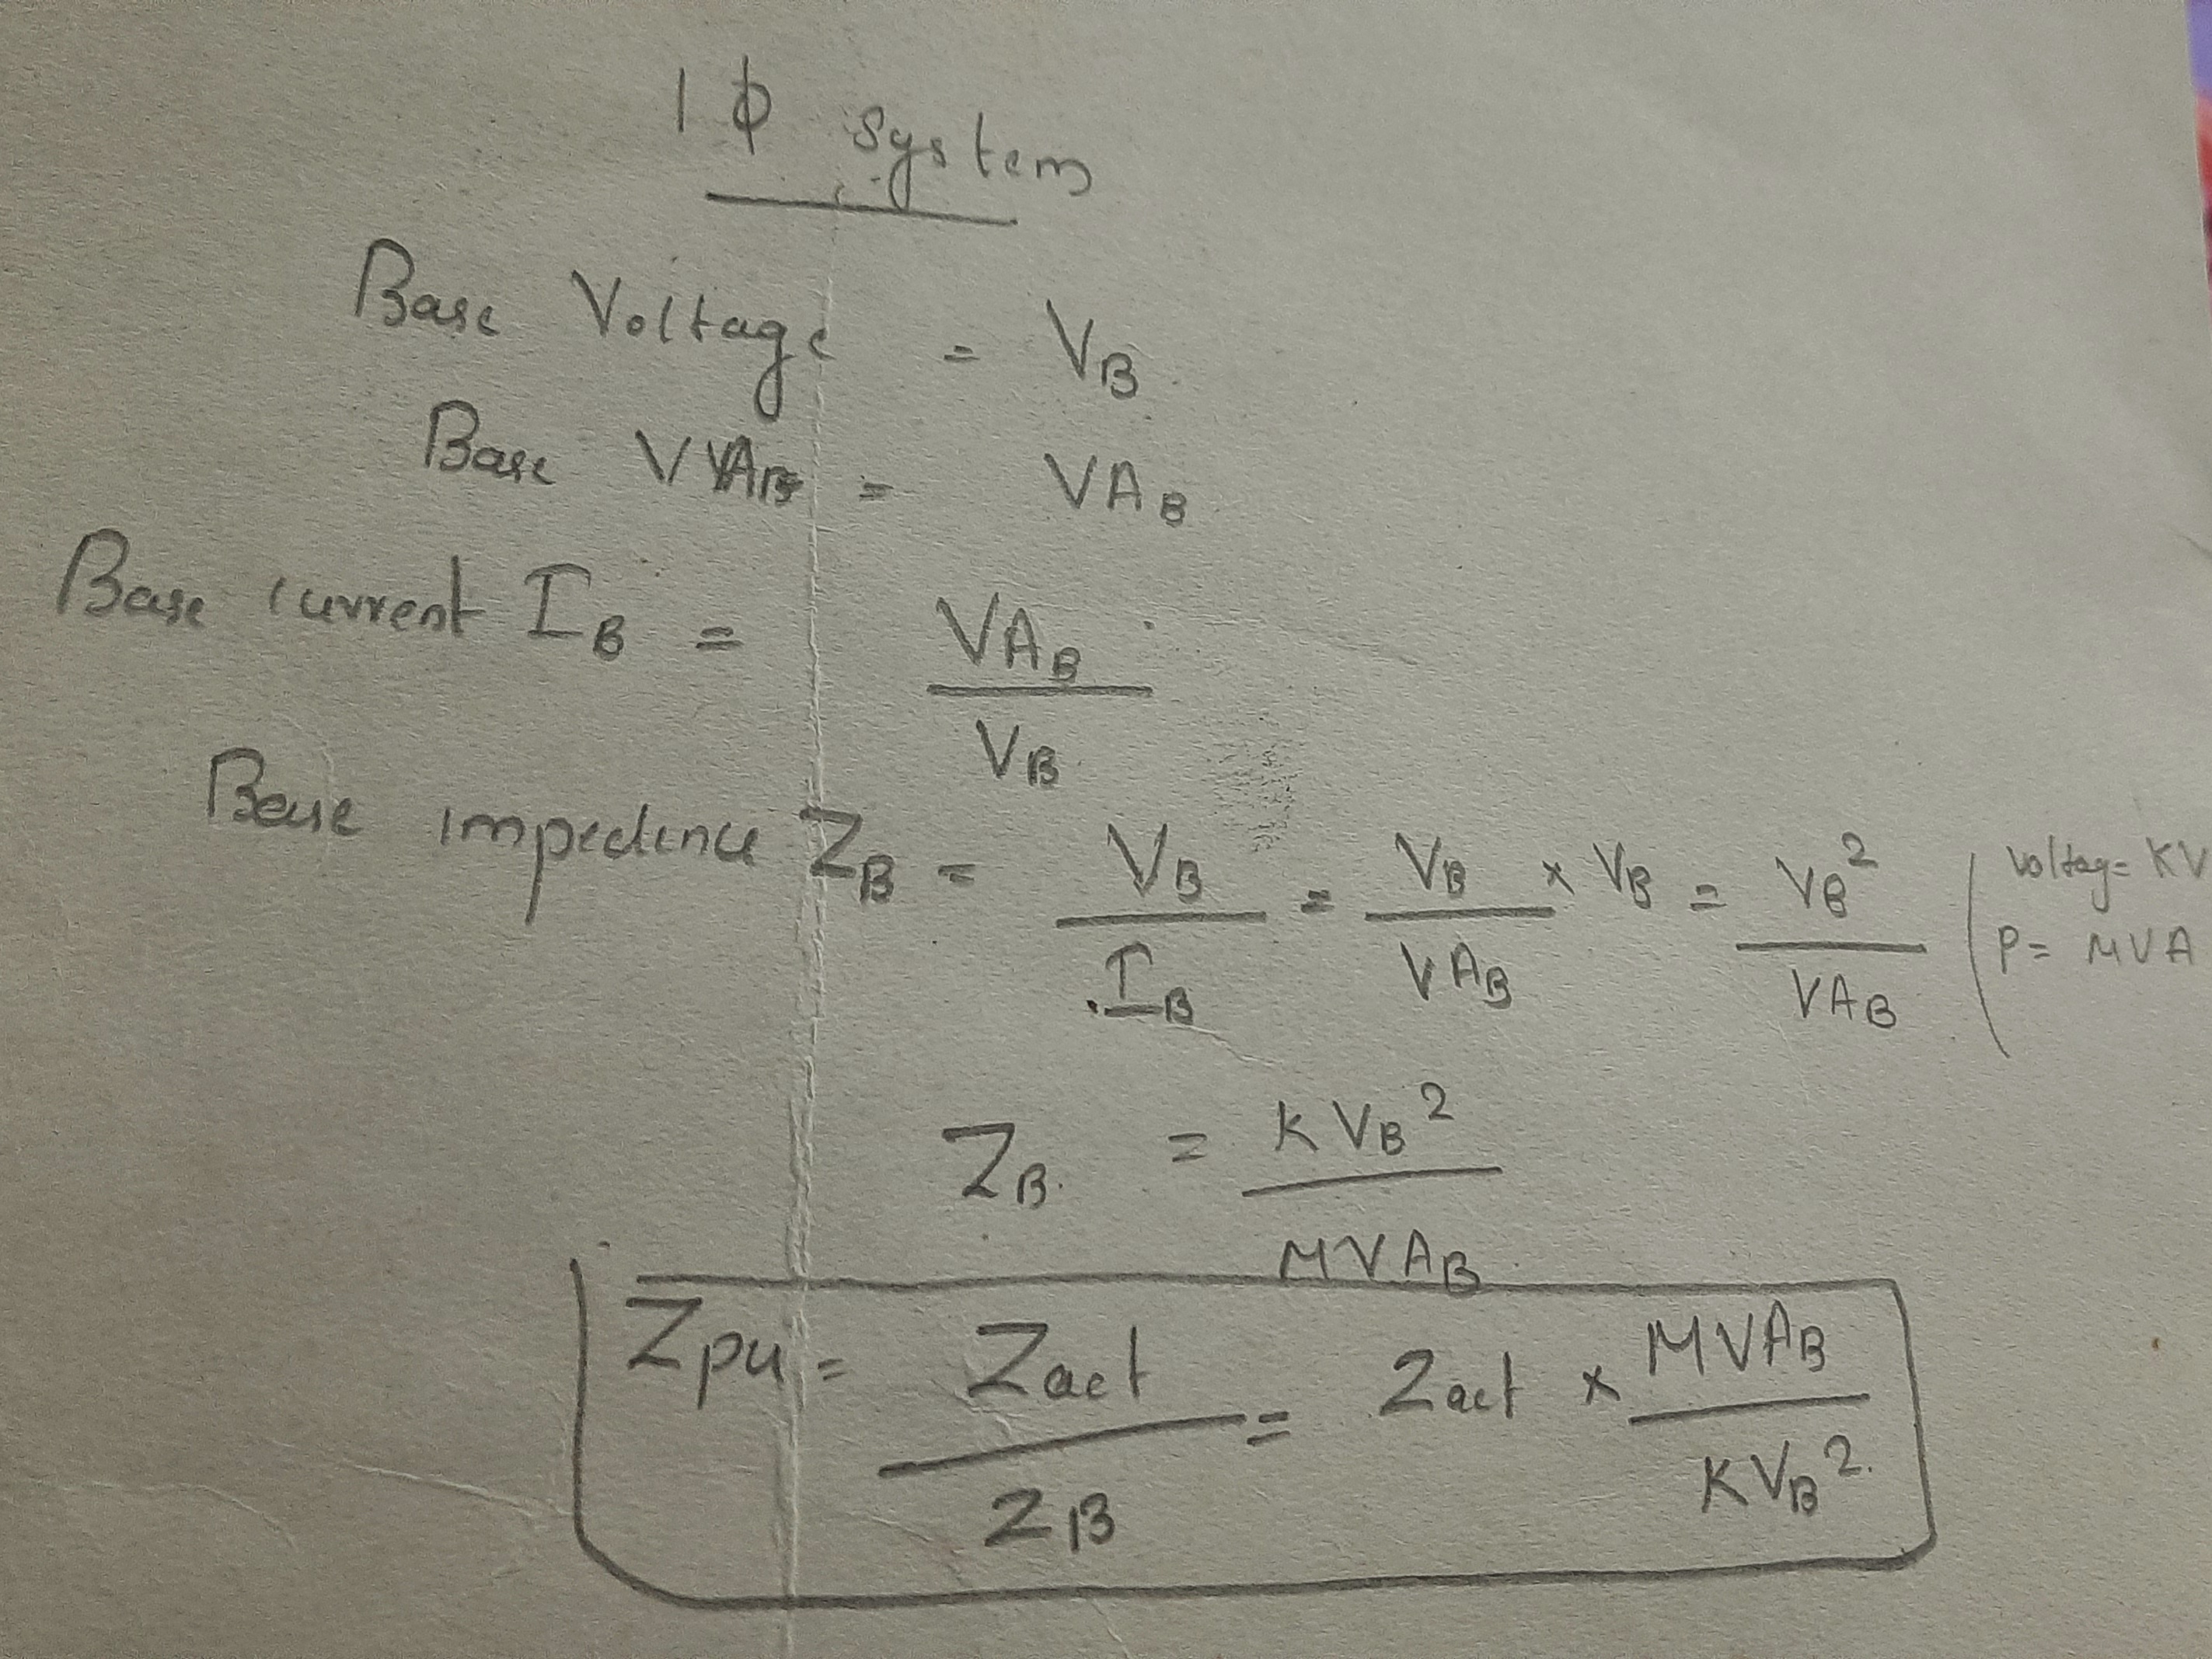 1 ϕ system
Base Voltage = V_B
Base VA_B = VA_B
Base current I_B = VA_B / V_B
Base impedence Z_B = V_B / I_B = V_B / VA_B × V_B = V_B² / VA_B ( Voltag= KV
P= MVA
Z_B = KV_B² / MVA_B
Zpu = Zact / Z_B = Zact × MVA_B / KV_B²